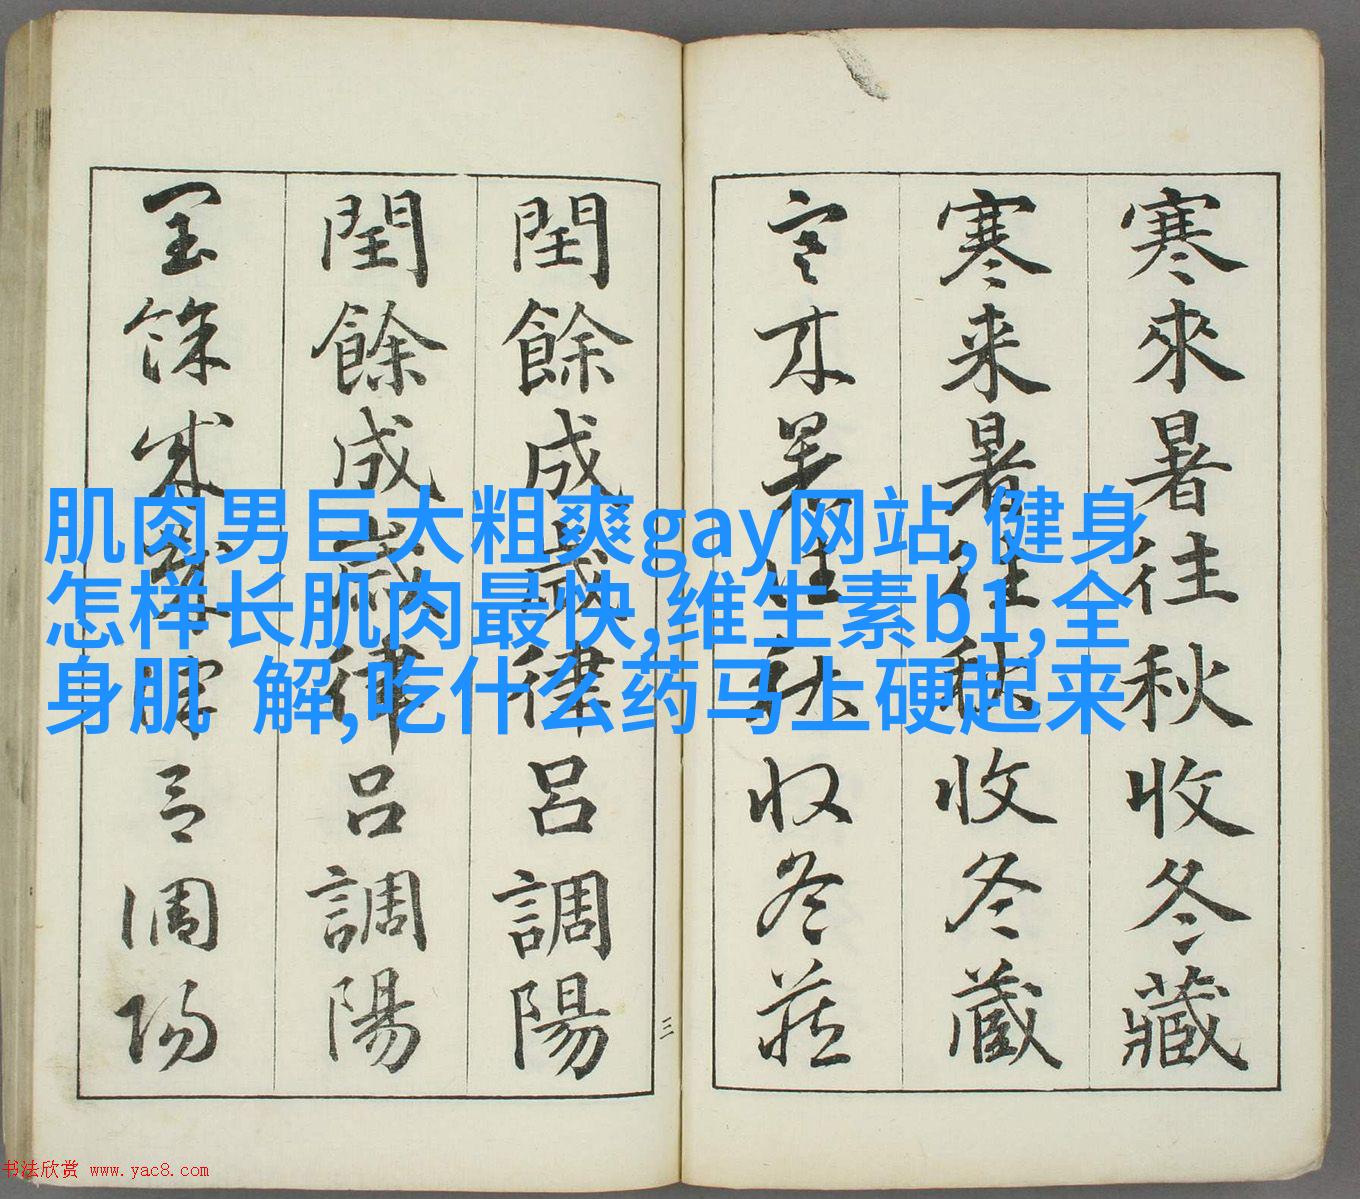 寒來暑往秋收冬藏
寒来暑往秋收冬蔵
閏餘成歲律呂調陽
閏餘成歳律呂調陽
三
肌肉男巨大粗爽gay网站,健身
怎样长肌肉最快,维生素b1,全
身肌 解,吃什么药马上硬起来
书法欣赏 www.yac8.com